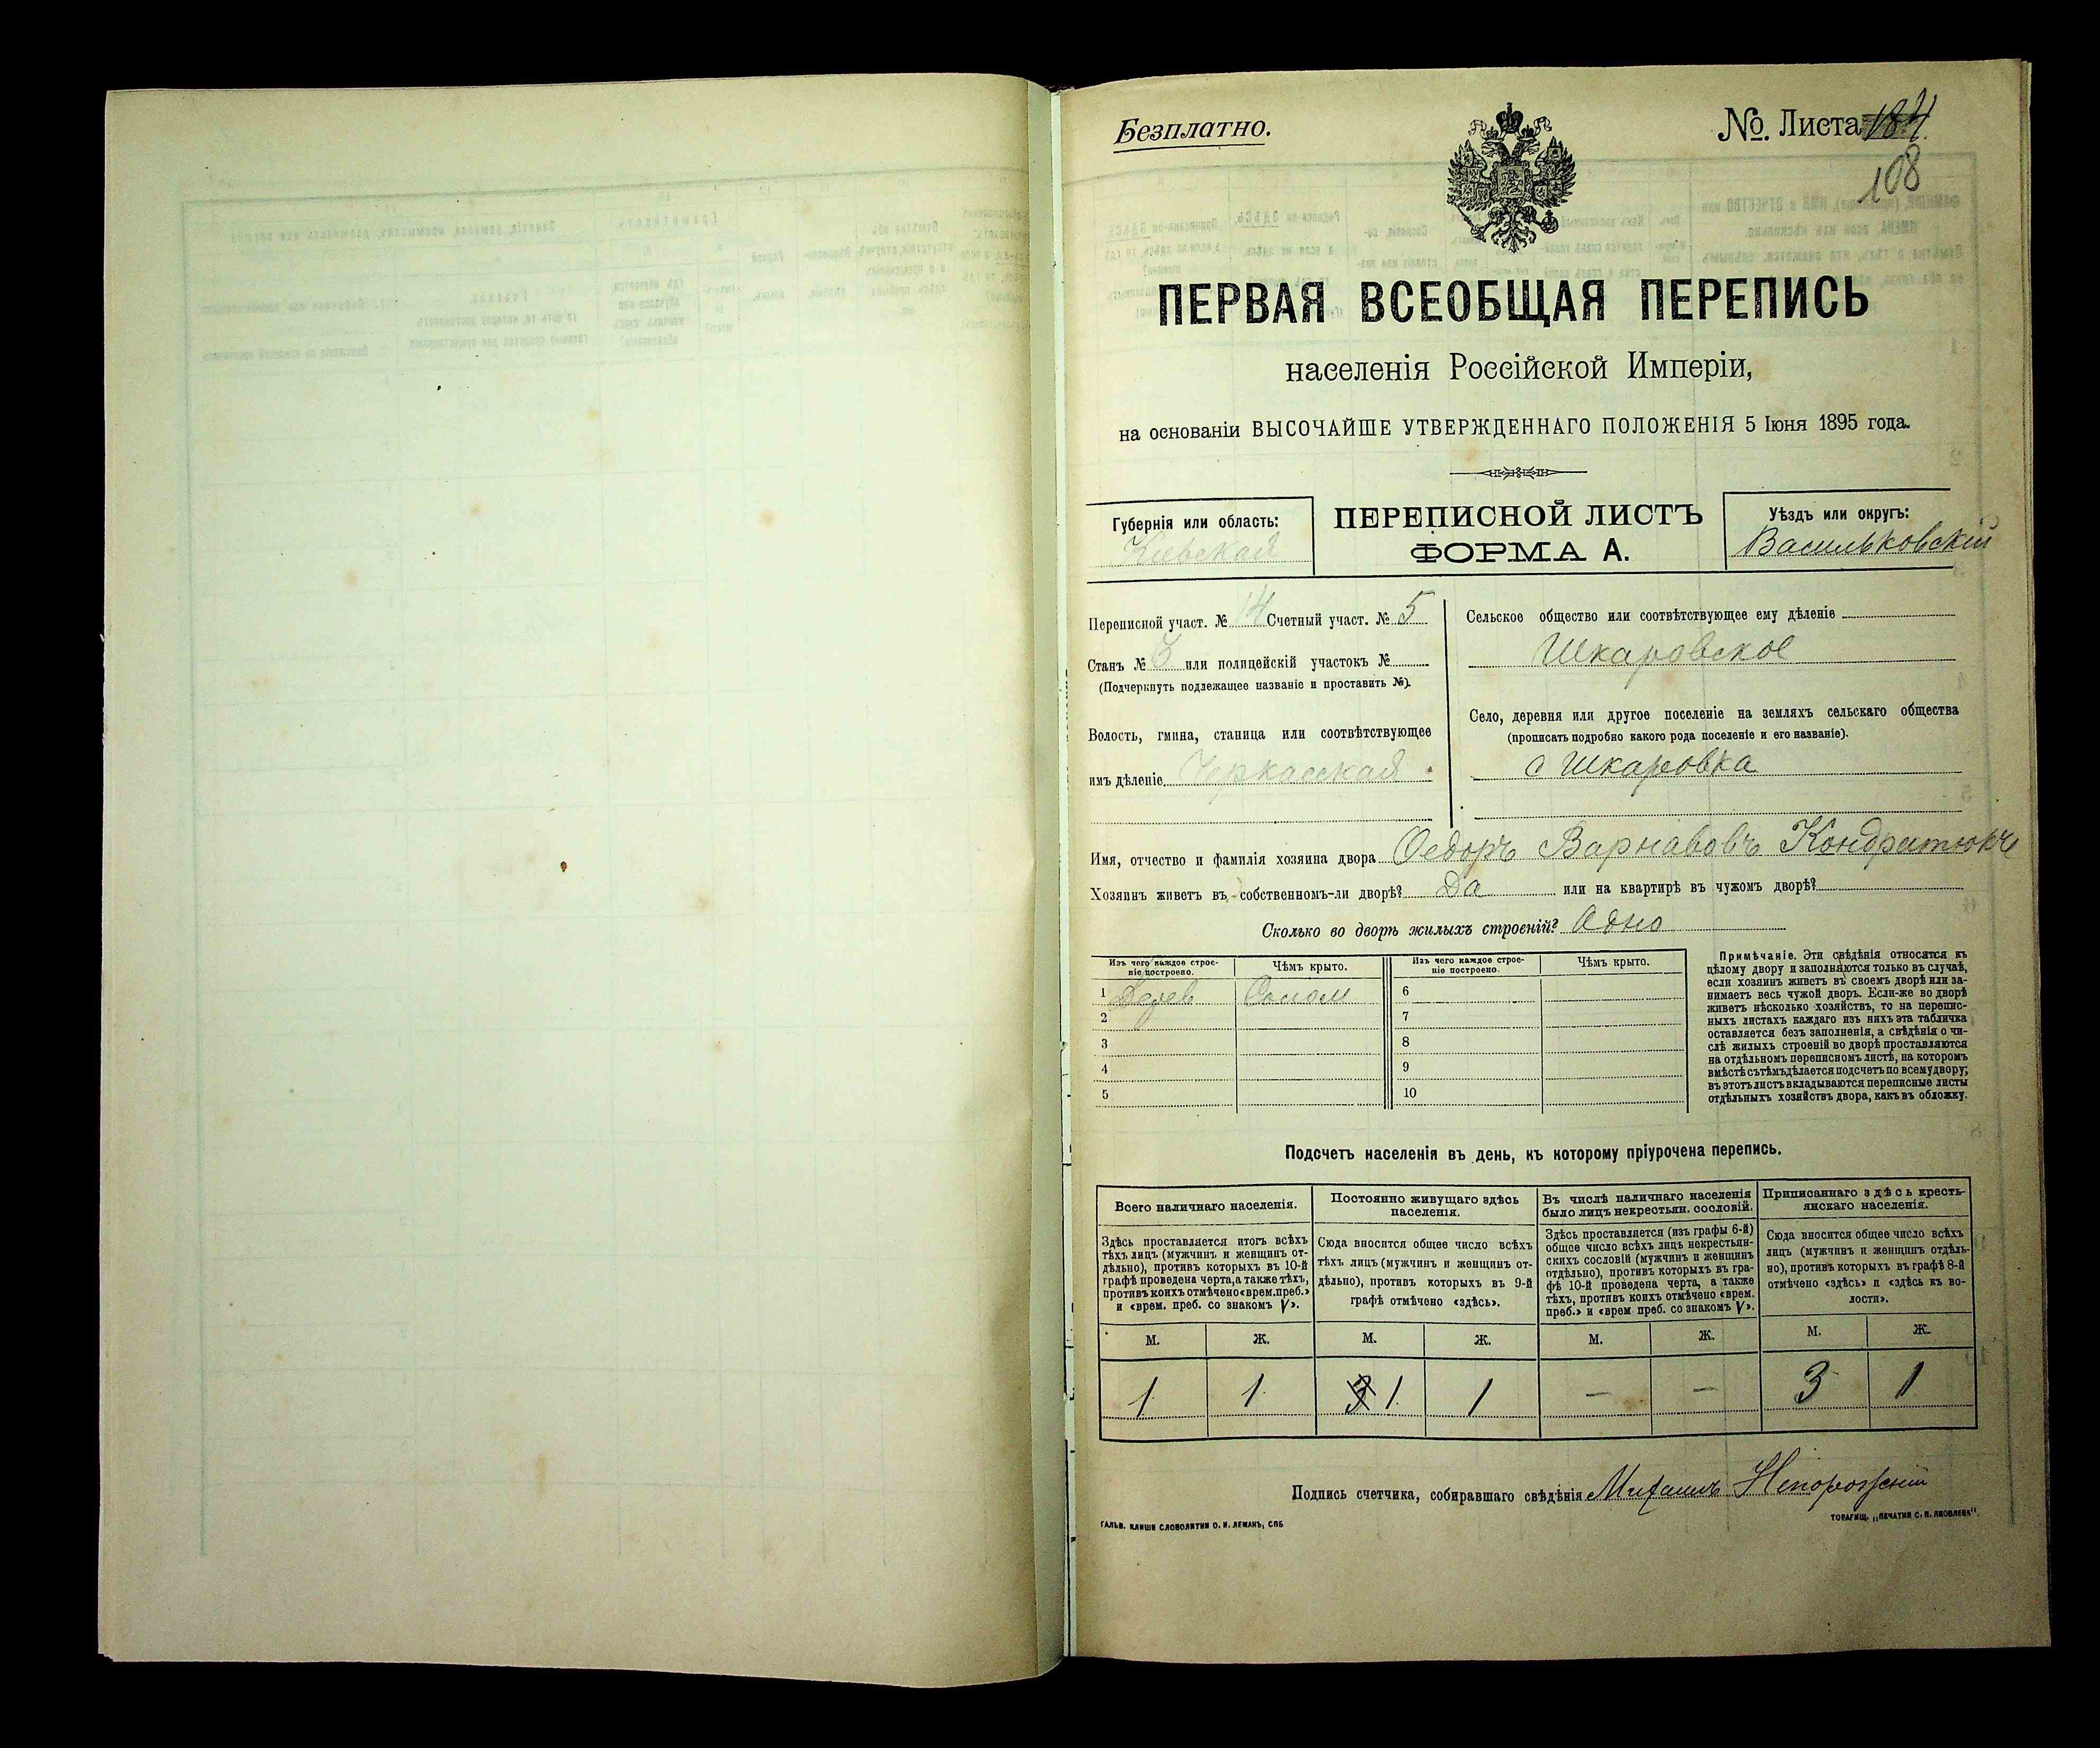 Безплатно.
№. Листа
108
ПЕРВАЯ ВСЕОБЩАЯ ПЕРЕПИСЬ
населенія Россійской Имперіи,
на основаніи ВЫСОЧАЙШЕ УТВЕРЖДЕННАГО ПОЛОЖЕНІЯ 5 Іюня 1895 года.
Губернія или область:
Кіевская
ПЕРЕПИСНОЙ ЛИСТЪ
ФОРМА А.
Уѣздъ или округъ:
Васильковскій
Переписной участ. № 14 Счетный участ. № 5
Станъ № 3 или полицейскій участокъ №
(Подчеркнуть подлежащее названіе и проставить №).
Волость, гмина, станица или соотвѣтствующее
имъ дѣленіе Черкасская
Сельское общество или соотвѣтствующее ему дѣленіе
Шкаровское
Село, деревня или другое поселеніе на земляхъ сельскаго общества
(прописать подробно какого рода поселеніе и его названіе).
с Шкаровка
Имя, отчество и фамилія хозяина двора Ѳедоръ Варнавовъ Кондратюкъ
Хозяинъ живетъ въ собственномъ-ли дворѣ? Да или на квартирѣ въ чужомъ дворѣ?
Сколько во дворѣ жилыхъ строеній? Одно
Изъ чего каждое строе-
ніе построено.
Чѣмъ крыто.
Изъ чего каждое строе-
ніе построено.
Чѣмъ крыто.
1 Дерев Солом 6
2 7
3 8
4 9
5 10
Примѣчаніе. Эти свѣдѣнія относятся къ
цѣлому двору и заполняются только въ случаѣ,
если хозяинъ живетъ въ своемъ дворѣ или за-
нимаетъ весь чужой дворъ. Если-же во дворѣ
живетъ нѣсколько хозяйствъ, то на перепис-
ныхъ листахъ каждаго изъ нихъ эта табличка
оставляется безъ заполненія, а свѣдѣнія о чи-
слѣ жилыхъ строеній во дворѣ проставляются
на отдѣльномъ переписномъ листѣ, на которомъ
вмѣстѣ съ тѣмъ дѣлается подсчетъ по всему двору;
въ этотъ листъ вкладываются переписные листы
отдѣльныхъ хозяйствъ двора, какъ въ обложку.
Подсчетъ населенія въ день, къ которому пріурочена перепись.
Всего наличнаго населенія.
Здѣсь проставляется итогъ всѣхъ
тѣхъ лицъ (мужчинъ и женщинъ от-
дѣльно), противъ которыхъ въ 10-й
графѣ проведена черта, а также тѣхъ,
противъ коихъ отмѣчено «врем. преб.»
и «врем. преб. со знакомъ V».
Постоянно живущаго здѣсь
населенія.
Сюда вносится общее число всѣхъ
тѣхъ лицъ (мужчинъ и женщинъ от-
дѣльно), противъ которыхъ въ 9-й
графѣ отмѣчено «здѣсь».
Въ числѣ наличнаго населенія
было лицъ некрестьян. сословій.
Здѣсь проставляется (изъ графы 6-й)
общее число всѣхъ лицъ некрестьян-
скихъ сословій (мужчинъ и женщинъ
отдѣльно), противъ которыхъ въ гра-
фѣ 10-й проведена черта, а также
тѣхъ, противъ коихъ отмѣчено «врем.
преб.» и «врем. преб. со знакомъ V».
Приписаннаго здѣсь кресть-
янскаго населенія.
Сюда вносится общее число всѣхъ
лицъ (мужчинъ и женщинъ отдѣль-
но), противъ которыхъ въ графѣ 8-й
отмѣчено «здѣсь» и «здѣсь къ во-
лости».
М. Ж. М. Ж. М. Ж. М. Ж.
1 1 3 1 1 — — 3 1
Подпись счетчика, собиравшаго свѣдѣнія Михаилъ
ГАЛЬВ. КЛИШЕ СЛОВОЛИТНИ О. И. ЛЕМАНЪ, СПБ
ТОВАРИЩ. „ПЕЧАТНЯ С. П. ЯКОВЛЕВА".